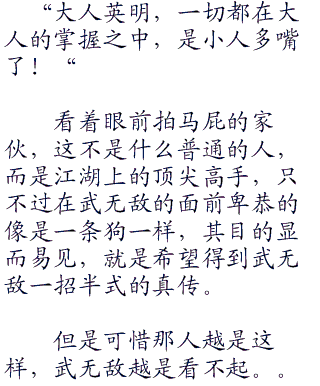 “大人英明，一切都在大
人的掌握之中，是小人多嘴
了！“
看着眼前拍马屁的家
伙，这不是什么普通的人，
而是江湖上的顶尖高手，只
不过在武无敌的面前卑恭的
像是一条狗一样，其目的显
而易见，就是希望得到武无
敌一招半式的真传。
但是可惜那人越是这
样，武无敌越是看不起。。